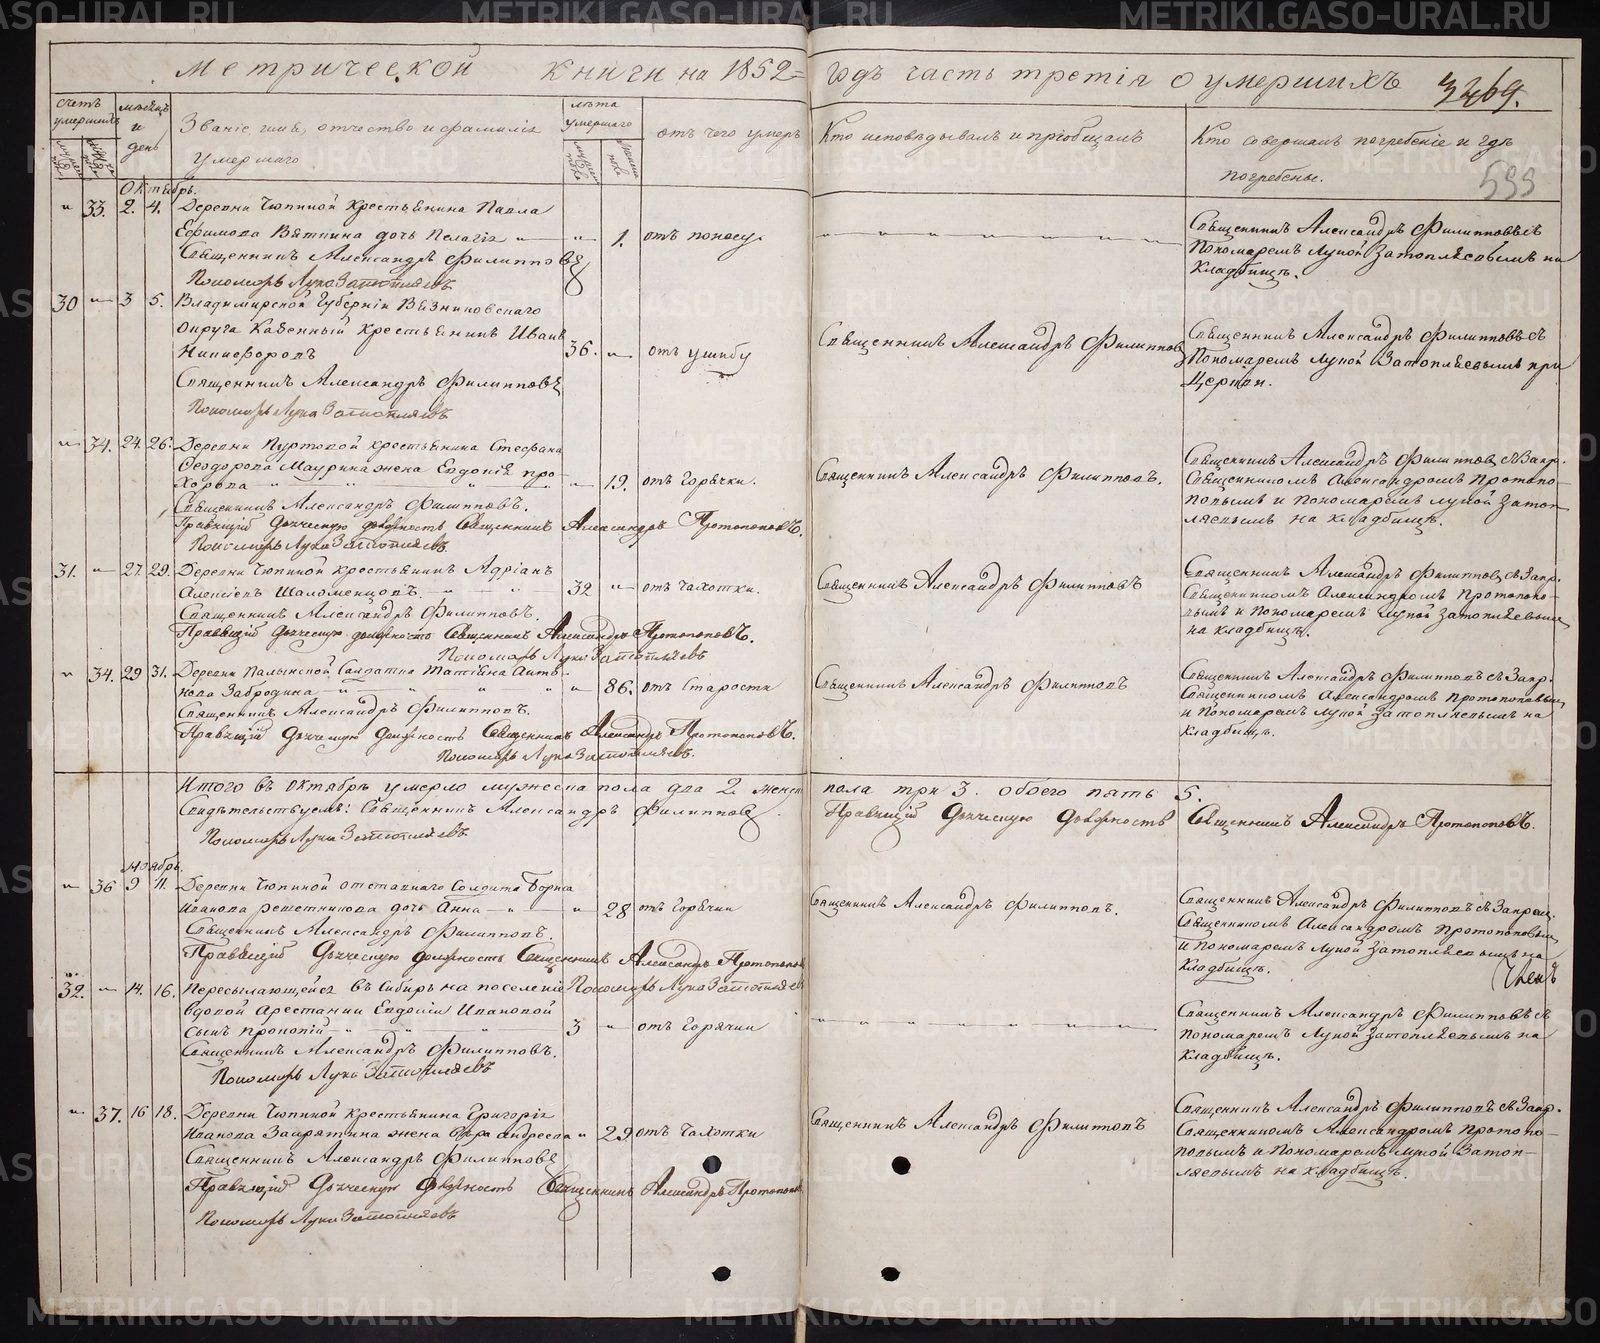 Метрической книги на 1852 = годъ часть третія о умершихъ
счетъ умершихъ
мѣсяцъ и день
Званіе, имя, отчество и фамилія
умершаго
лѣта умершаго
отъ чего умеръ
Кто исповѣдывалъ и пріобщалъ
Кто совершалъ погребеніе и гдѣ
погребены.
599
Октябрь.
33. 2. 4. Деревни Чюпиной крестьянина Павла
Ефимова Вяткина дочь Пелагія 1. отъ поносу
Священникъ Александръ Филипповъ
Пономарь Лука Затопляевъ
Священникъ Александръ Филипповъ съ
Пономаремъ Лукой Затопляевымъ на
кладбищѣ.
30 3 5. Владимирской Губерніи Вязниковскаго
округа Казенный крестьянинъ Иванъ
Никифоровъ 36. отъ ушибу
Священникъ Александръ Филипповъ
Пономарь Лука Затопляевъ
Священникъ Александръ Филипповъ
Священникъ Александръ Филипповъ съ
Пономаремъ Лукой Затопляевымъ при
Церкви.
34. 24. 26. Деревни крестьянина Стефана
Феодорова Маурина жена Евдокія Про-
хорова 19. отъ Горячки.
Священникъ Александръ Филипповъ.
Правящій Дьяческую должность Священникъ Александръ Протопоповъ.
Пономарь Лука Затопляевъ
Священникъ Александръ Филипповъ.
Священникъ Александръ Филипповъ съ Запр.
Священникомъ Александромъ Протопо-
повымъ и Пономаремъ Лукой Затоп-
ляевымъ на кладбищѣ.
31. 27. 29. Деревни Чюпиной крестьянинъ Адріанъ
Алексѣевъ Шаломенцовъ. 32 отъ Чахотки.
Священникъ Александръ Филипповъ.
Правящій Дьяческую должность Священникъ Александръ Протопоповъ.
Пономарь Лука Затопляевъ
Священникъ Александръ Филипповъ
Священникъ Александръ Филипповъ съ Запр.
Священникомъ Александромъ Протопопо-
вымъ и Пономаремъ Лукой Затопляевымъ
на кладбищѣ.
34. 29 31. Деревни Солдатка Татіяна Анто-
нова Забродина 86. отъ Старости
Священникъ Александръ Филипповъ.
Правящій Дьяческую Должность Священникъ Александръ Протопоповъ.
Пономарь Лука Затопляевъ.
Священникъ Александръ Филипповъ
Священникъ Александръ Филипповъ съ Запр.
Священникомъ Александромъ Протопоповымъ
и Пономаремъ Лукой Затопляевымъ на
кладбищѣ.
Итого въ Октябрѣ умерло мужеска пола два 2. женска пола три 3. обоего пять 5.
Свидѣтельствуемъ: Священникъ Александръ Филипповъ.
Правящій Дьяческую Должность Священникъ Александръ Протопоповъ.
Пономарь Лука Затопляевъ
Ноябрь.
36 9 11. Деревни Чюпиной отставнаго Солдата Бориса
Иванова Решетникова дочь Анна 28 отъ Горячки
Священникъ Александръ Филипповъ.
Правящій Дьяческую должность Священникъ Александръ Протопоповъ
Пономарь Лука Затопляевъ
Священникъ Александръ Филипповъ.
Священникъ Александръ Филипповъ съ Запрещ.
Священникомъ Александромъ Протопоповымъ
и Пономаремъ Лукой Затопляевымъ на
кладбищѣ.
Членъ
32. 14. 16. Пересылающейся въ Сибирь на поселеніе
вдовой Арестанки Евдокіи Ивановой
сынъ Прокопій 3 отъ Горячки
Священникъ Александръ Филипповъ.
Пономарь Лука Затопляевъ
Священникъ Александръ Филипповъ съ
Пономаремъ Лукой Затопляевымъ на
кладбищѣ.
37. 16 18. Деревни Чюпиной крестьянина Григорія
Иванова жена Андреева 29 отъ Чахотки
Священникъ Александръ Филипповъ
Правящій Дьяческую Должность Священникъ Александръ Протопоповъ
Пономарь Лука Затопляевъ
Священникъ Александръ Филипповъ
Священникъ Александръ Филипповъ съ Запр.
Священникомъ Александромъ Протопо-
повымъ и Пономаремъ Лукой Затоп-
ляевымъ на кладбищѣ.
METRIKI.GASO-URAL.RU